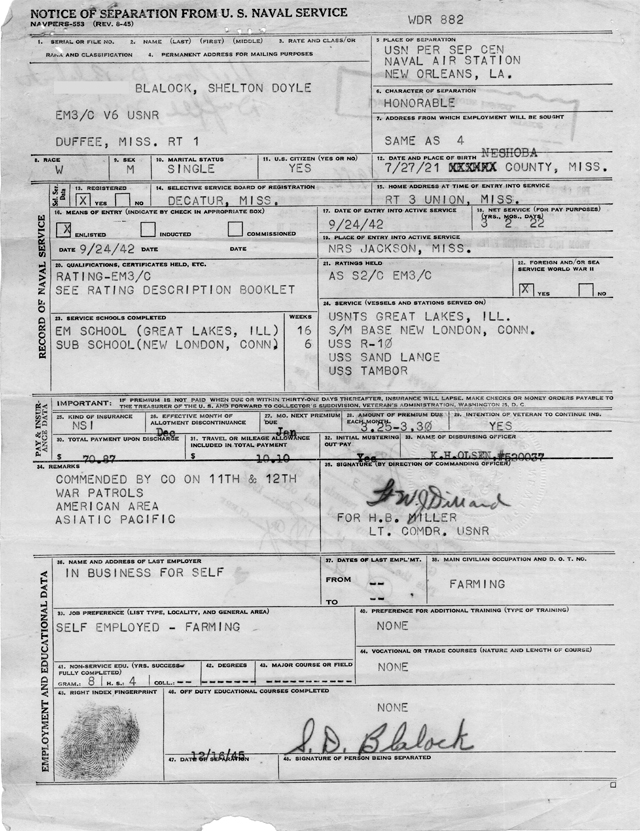 NOTICE OF SEPARATION FROM U. S. NAVAL SERVICE
NAVPERS-553 (REV. 8-45)
WDR 882
1. SERIAL OR FILE NO. 2. NAME (LAST) (FIRST) (MIDDLE) 3. RATE AND CLASS/OR
RATE AND CLASSIFICATION 4. PERMANENT ADDRESS FOR MAILING PURPOSES
BLALOCK, SHELTON DOYLE
EM3/C V6 USNR
DUFFEE, MISS. RT 1
5 PLACE OF SEPARATION
USN PER SEP CEN
NAVAL AIR STATION
NEW ORLEANS, LA.
6. CHARACTER OF SEPARATION
HONORABLE
7. ADDRESS FROM WHICH EMPLOYMENT WILL BE SOUGHT
SAME AS 4
8. RACE
W
9. SEX
M
10. MARITAL STATUS
SINGLE
11. U.S. CITIZEN (YES OR NO)
YES
12. DATE AND PLACE OF BIRTH NESHOBA
7/27/21 XXXXXX COUNTY, MISS.
Sel. Ser. Data
13. REGISTERED
X YES NO
14. SELECTIVE SERVICE BOARD OF REGISTRATION
DECATUR, MISS.
15. HOME ADDRESS AT TIME OF ENTRY INTO SERVICE
RT 3 UNION, MISS.
RECORD OF NAVAL SERVICE
16. MEANS OF ENTRY (INDICATE BY CHECK IN APPROPRIATE BOX)
X ENLISTED INDUCTED COMMISSIONED
DATE 9/24/42 DATE DATE
17. DATE OF ENTRY INTO ACTIVE SERVICE
9/24/42
18. NET SERVICE (FOR PAY PURPOSES)
(YRS., MOS., DAYS)
3 2 22
19. PLACE OF ENTRY INTO ACTIVE SERVICE
NRS JACKSON, MISS.
20. QUALIFICATIONS, CERTIFICATES HELD, ETC.
RATING-EM3/C
SEE RATING DESCRIPTION BOOKLET
21. RATINGS HELD
AS S2/C EM3/C
22. FOREIGN AND/OR SEA
SERVICE WORLD WAR II
X YES NO
23. SERVICE SCHOOLS COMPLETED WEEKS
EM SCHOOL (GREAT LAKES, ILL) 16
SUB SCHOOL(NEW LONDON, CONN) 6
24. SERVICE (VESSELS AND STATIONS SERVED ON)
USNTS GREAT LAKES, ILL.
S/M BASE NEW LONDON, CONN.
USS R-10
USS SAND LANCE
USS TAMBOR
PAY & INSURANCE DATA
IMPORTANT: IF PREMIUM IS NOT PAID WHEN DUE OR WITHIN THIRTY-ONE DAYS THEREAFTER, INSURANCE WILL LAPSE. MAKE CHECKS OR MONEY ORDERS PAYABLE TO
THE TREASURER OF THE U. S. AND FORWARD TO COLLECTOR'S SUBDIVISION, VETERAN'S ADMINISTRATION, WASHINGTON 25, D. C.
25. KIND OF INSURANCE
NSI
26. EFFECTIVE MONTH OF
ALLOTMENT DISCONTINUANCE
Dec
27. MO. NEXT PREMIUM
DUE
Jan
28. AMOUNT OF PREMIUM DUE
EACH MONTH
3.25-3.30
29. INTENTION OF VETERAN TO CONTINUE INS.
YES
30. TOTAL PAYMENT UPON DISCHARGE
$ 70.87
31. TRAVEL OR MILEAGE ALLOWANCE
INCLUDED IN TOTAL PAYMENT
$ 10.10
32. INITIAL MUSTERING
OUT PAY
Yes
33. NAME OF DISBURSING OFFICER
K.H.OLSEN, #520037
34. REMARKS
COMMENDED BY CO ON 11TH & 12TH
WAR PATROLS
AMERICAN AREA
ASIATIC PACIFIC
35. SIGNATURE (BY DIRECTION OF COMMANDING OFFICER)
FOR H.B. MILLER
LT. COMDR. USNR
EMPLOYMENT AND EDUCATIONAL DATA
36. NAME AND ADDRESS OF LAST EMPLOYER
IN BUSINESS FOR SELF
37. DATES OF LAST EMPL'MT.
FROM --
TO --
38. MAIN CIVILIAN OCCUPATION AND D. O. T. NO.
FARMING
39. JOB PREFERENCE (LIST TYPE, LOCALITY, AND GENERAL AREA)
SELF EMPLOYED - FARMING
40. PREFERENCE FOR ADDITIONAL TRAINING (TYPE OF TRAINING)
NONE
41. NON-SERVICE EDU. (YRS. SUCCESS-
FULLY COMPLETED)
GRAM.: 8 H. S.: 4 COLL.: --
42. DEGREES
43. MAJOR COURSE OR FIELD
44. VOCATIONAL OR TRADE COURSES (NATURE AND LENGTH OF COURSE)
NONE
45. RIGHT INDEX FINGERPRINT
46. OFF DUTY EDUCATIONAL COURSES COMPLETED
NONE
12/16/45
47. DATE OF SEPARATION
S. D. Blalock
48. SIGNATURE OF PERSON BEING SEPARATED